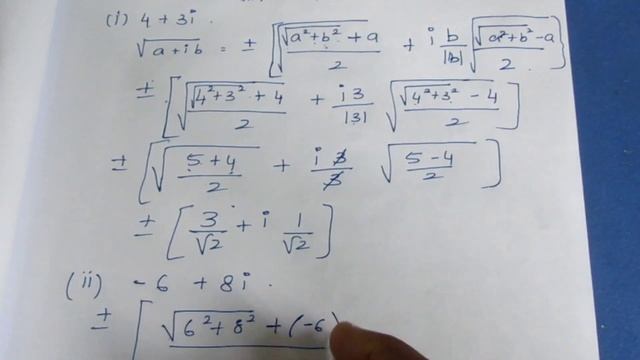 (i) 4 + 3i.
√(a + ib) = ± [√((√(a² + b²) + a)/2) + i b/|b| √((√(a² + b²) - a)/2)]
± [√((√(4² + 3²) + 4)/2) + i3/|3| √((√(4² + 3²) - 4)/2)]
± [√((5 + 4)/2) + i 3/3 √((5 - 4)/2)]
± [3/√2 + i 1/√2]
(ii) - 6 + 8i.
± [√(6² + 8²) + (-6)